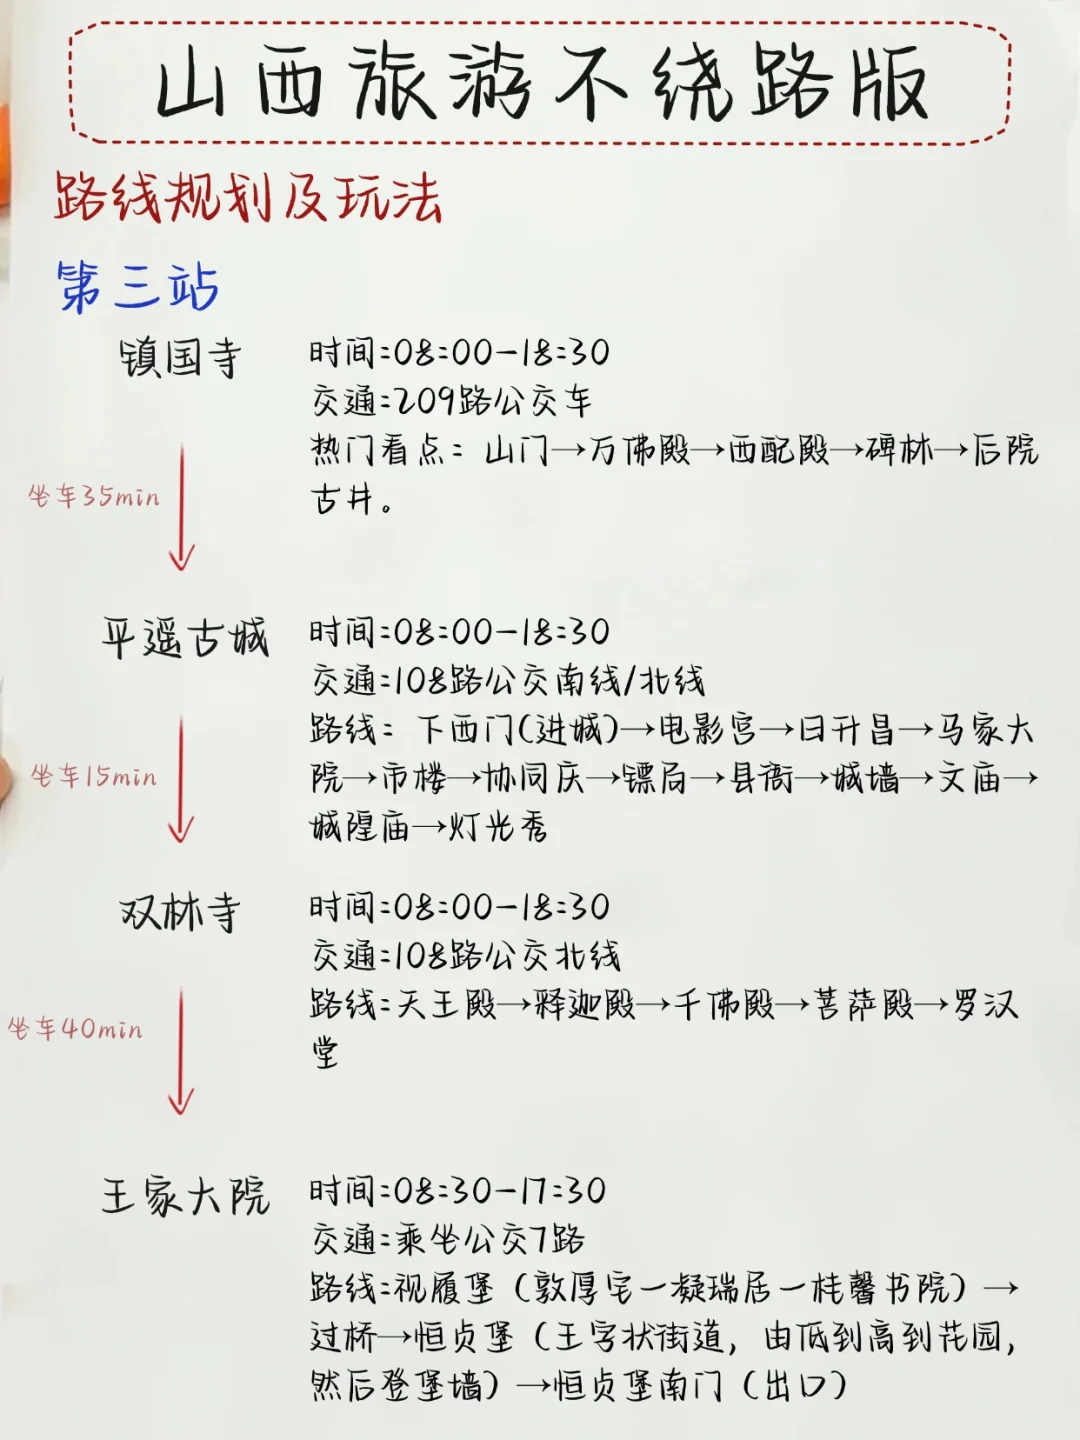 山西旅游不绕路版
路线规划及玩法
第三站
镇国寺
时间:08:00-18:30
交通:209路公交车
热门看点：山门→万佛殿→西配殿→碑林→后院
古井。
坐车35min
平遥古城
时间:08:00-18:30
交通:108路公交南线/北线
路线：下西门(进城)→电影宫→日升昌→马家大
院→市楼→协同庆→镖局→县衙→城墙→文庙→
城隍庙→灯光秀
坐车15min
双林寺
时间:08:00-18:30
交通:108路公交北线
路线:天王殿→释迦殿→千佛殿→菩萨殿→罗汉
堂
坐车40min
王家大院
时间:08:30-17:30
交通:乘坐公交7路
路线:视履堡（敦厚宅一凝瑞居一桂馨书院）→
过桥→恒贞堡（王字状街道，由低到高到花园，
然后登堡墙）→恒贞堡南门（出口）